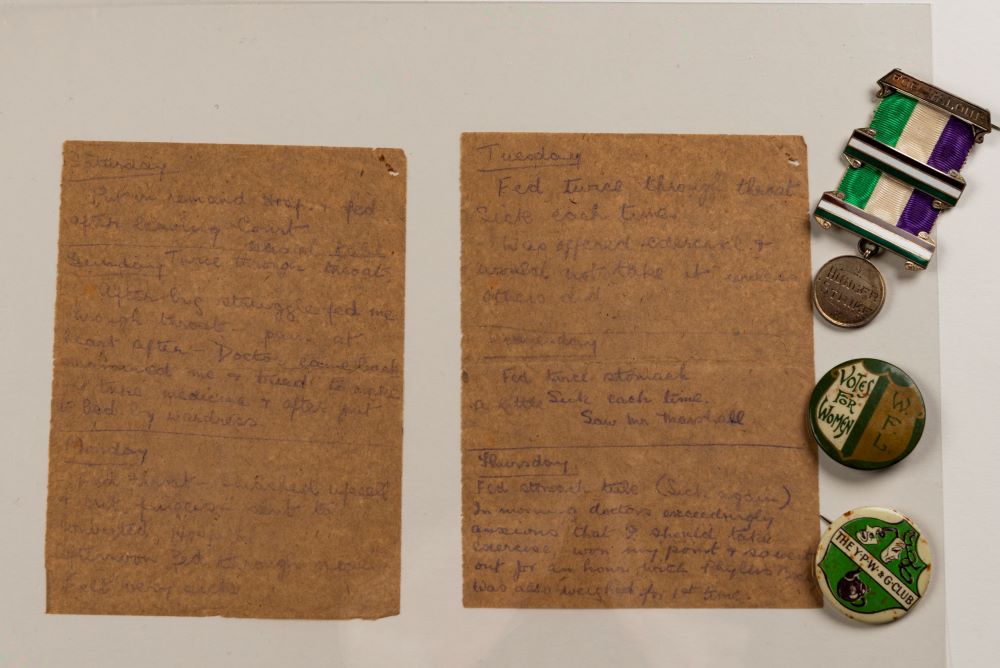 Saturday
Put in remand Hosp. & fed
after leaving Court
nasal tube.
Sunday Twice through throat
After big struggle fed me
through throat pain at
heart after - Doctor came back
& tried to
medicine & after put
to Bed by wardress
Monday
Fed throat - smashed
& cut finger sent to
afternoon 3rd through nose
Felt very sick
Tuesday
Fed twice through throat
Sick each time
Was offered exercise &
would not take it unless
others did
Wednesday
Fed twice stomach
a little Sick each time.
Saw Mr Marshall
Thursday
Fed stomach tube (Sick again)
In morning doctors exceedingly
anxious that I should take
exercise, won my point &
out for an hour with Phyllis
was also weighed for 1st time.
FOR VALOUR
HUNGER
STRIKE
VOTES
FOR
WOMEN
W.
F.
L.
THE Y.P.W. & G. CLUB